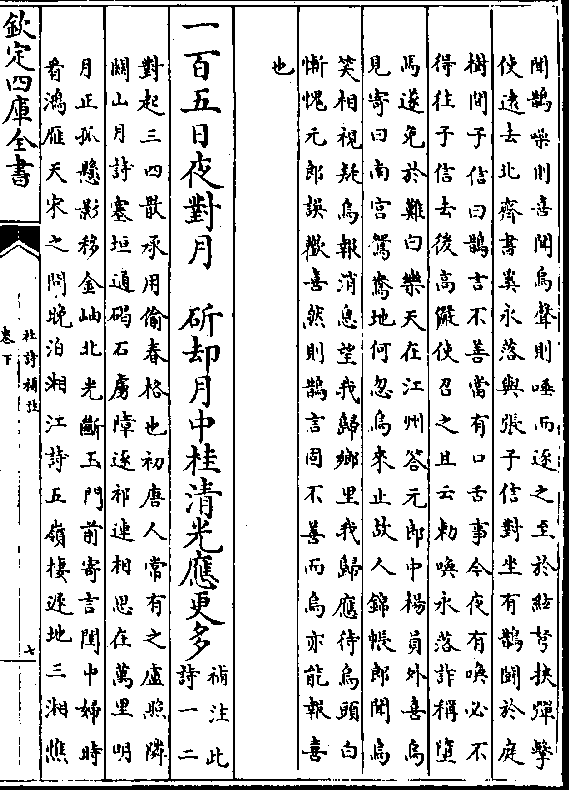 聞鵲噪則喜聞烏聲則唾而逐之至於紿弩挾彈擊
使逺去北齊書奚永落與張子信對坐有鵲鬭於庭
樹間子信曰鵲言不善當有口舌事今夜有喚必不
得往子信去後高儼使召之且云勅喚永落詐稱墮
馬遂免於難白樂天在江州答元郎中楊員外喜烏
見寄曰南宫鴛鴦地何忽烏來止故人錦帳郎聞烏
笑相視疑烏報消息望我歸鄉里我歸應待烏頭白
慚愧元郎誤歡喜然則鵲言固不善而烏亦能報喜
也
一百五日夜對月　斫却月中桂清光應更多
補注此
詩一二
對起三四散承用偷春格也初唐人常有之盧照隣
關山月詩塞垣通碣石虜幛逐祁連相思在萬里明
月正孤懸影移金岫北光斷玉門前寄言閨中婦時
看鴻雁天宋之問晚泊湘江詩五嶺棲遲地三湘憔
欽定四庫全書
杜詩補註
卷下
七